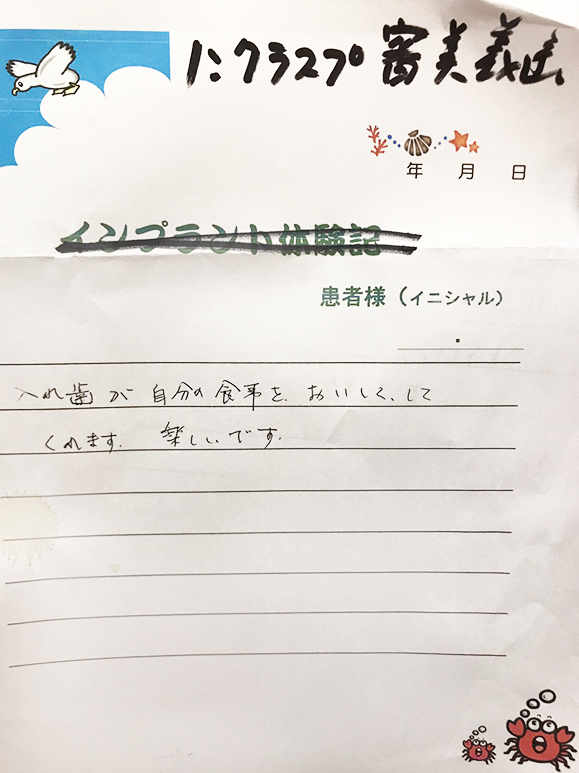 ノンクラスプ審美義歯
年 月 日
インプラント体験記
患者様（イニシャル）
入れ歯が自分の食事を、おいしく、して
くれます。楽しいです。